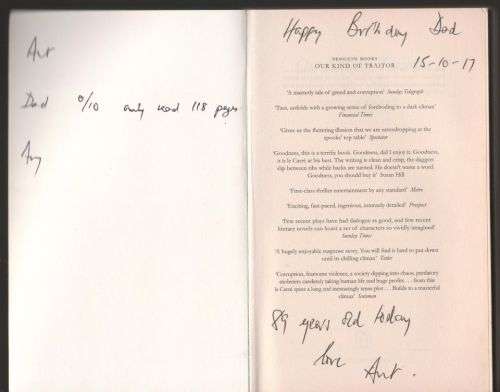 Ant
Dad 0/10 only read 118 pages
Happy Birthday Dad
PENGUIN BOOKS
OUR KIND OF TRAITOR
15-10-17
'A masterly tale of greed and corruption' Sunday Telegraph
unfolds with a growing sense of foreboding to a dark climax'
Financial Times
'Gives us the flattering illusion that we are eavesdropping at the
spooks' top table' Spectator
'Goodness, this is a terrific book. Goodness, did I enjoy it. Goodness,
it is le Carré at his best. The writing is clean and crisp, the daggers
slip between ribs while backs are turned. He doesn't waste a word.
Goodness, you should buy it' Susan Hill
'First-class thriller entertainment by any standard' Metro
'Exciting, fast-paced, ingenious, minutely detailed' Prospect
'Few recent plays have had dialogue as good, and few recent
literary novels can boast a set of characters so vividly imagined'
Sunday Times
'A hugely enjoyable suspense story. You will find it hard to put down
until its chilling climax' Tatler
'Corruption, fearsome violence, a society dipping into chaos, predatory
mobsters carelessly taking human life and huge profits . . . from this
le Carré spins a long and increasingly tense plot . . . Builds to a masterful
climax' Scotsman
89 years old today
love Ant.